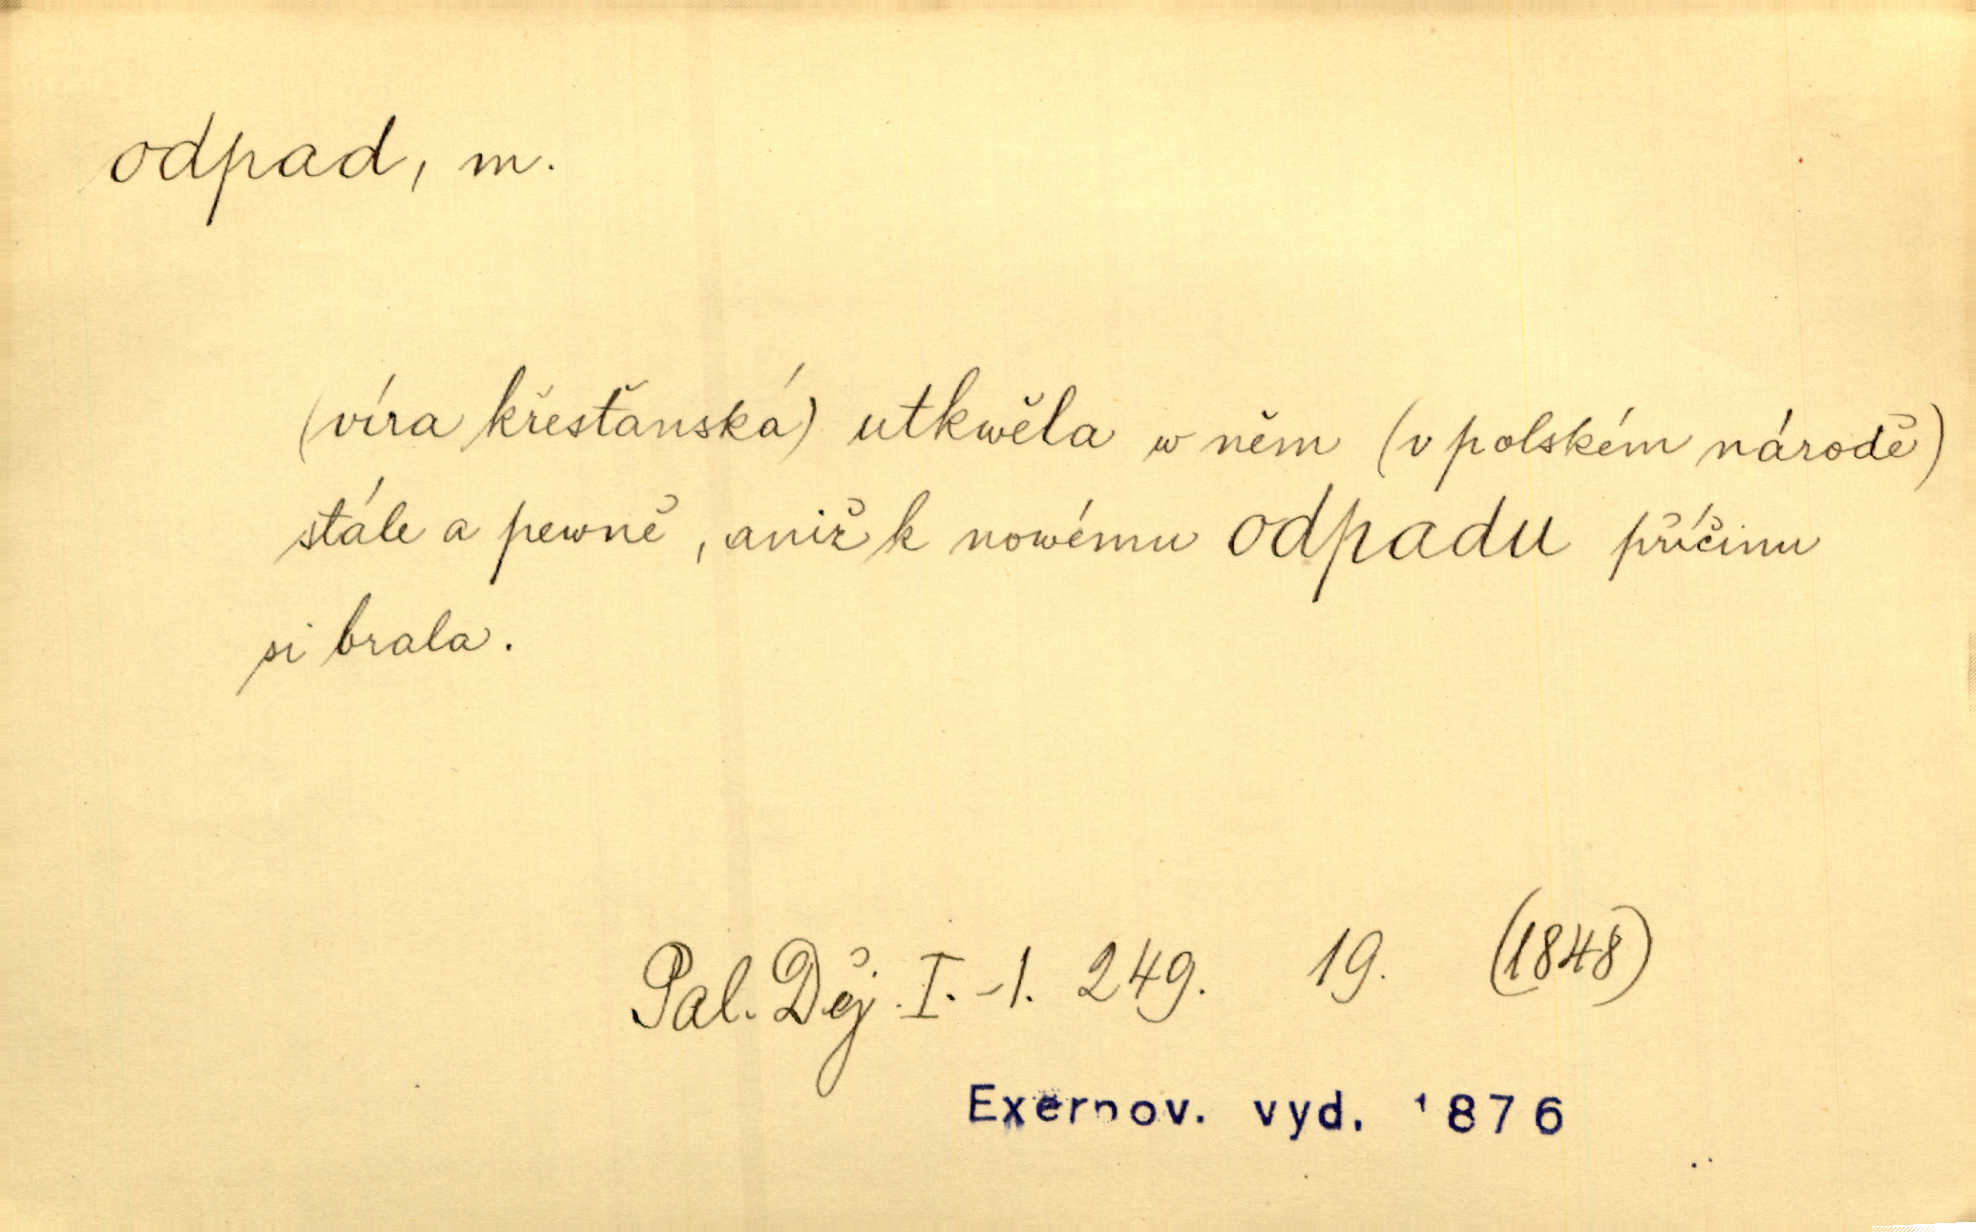 odpad, m.
(víra křesťanská) utkwěla w něm (v polském národě)
stále a pewně, aniž k nowému odpadu příčinu
si brala.
Pal. Děj. I.-1. 249. 19. (1848)
Excerpov. vyd. 1876